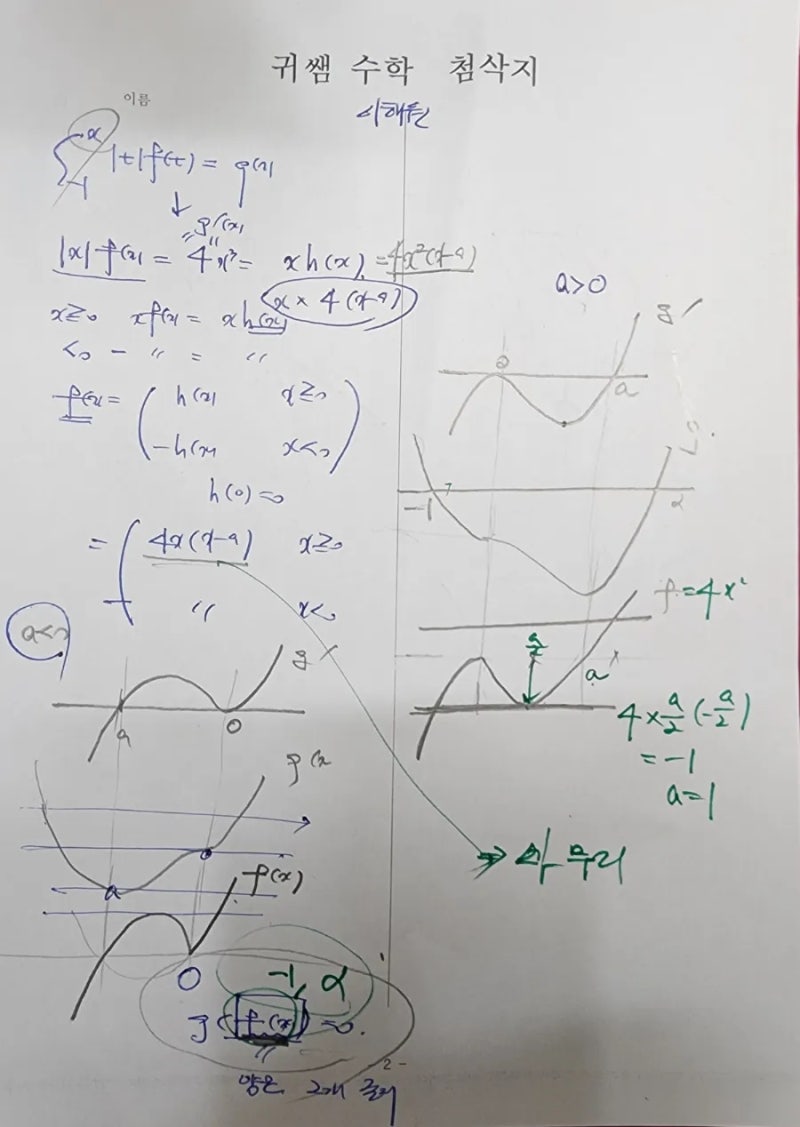 귀쌤 수학 첨삭지
이름
∫₋₁ˣ |t|f(t) = g(x)
↓ g'(x)
|x| f(x) = 4x³ = x h(x) = 4x²(x-a)
x≥0 xf(x) = x h(x) x × 4(x-a)
<0 - 〃 = 〃
f(x) = ( h(x) x≥0
-h(x) x<0 )
h(0) = 0
= ( 4x(x-a) x≥0
- 〃 x<0
a<0
g'
a 0
g(x
a
f(x)
0
-1, α
g(f(x)) = 0.
- 2 -
a>0
g'
0 a
-1 α
f=4x²
a/2
a
4×a/2(-a/2)
= -1
a=1